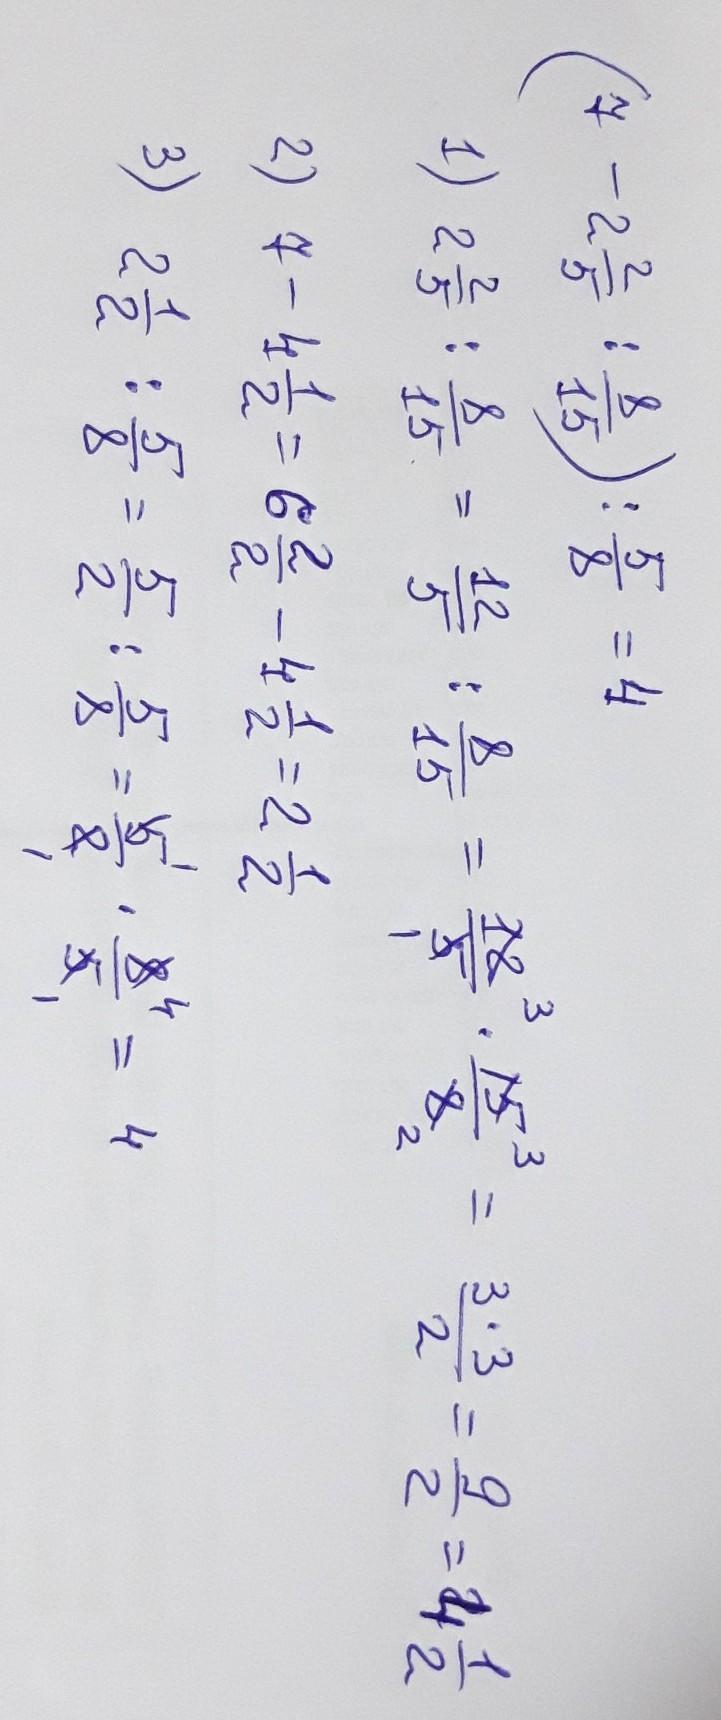 (7 - 2 2/5 : 8/15) : 5/8 = 4
1) 2 2/5 : 8/15 = 12/5 : 8/15 = 12/5 · 15/8 = 3·3/2 = 9/2 = 4 1/2
2) 7 - 4 1/2 = 6 2/2 - 4 1/2 = 2 1/2
3) 2 1/2 : 5/8 = 5/2 : 5/8 = 5/2 · 8/5 = 4